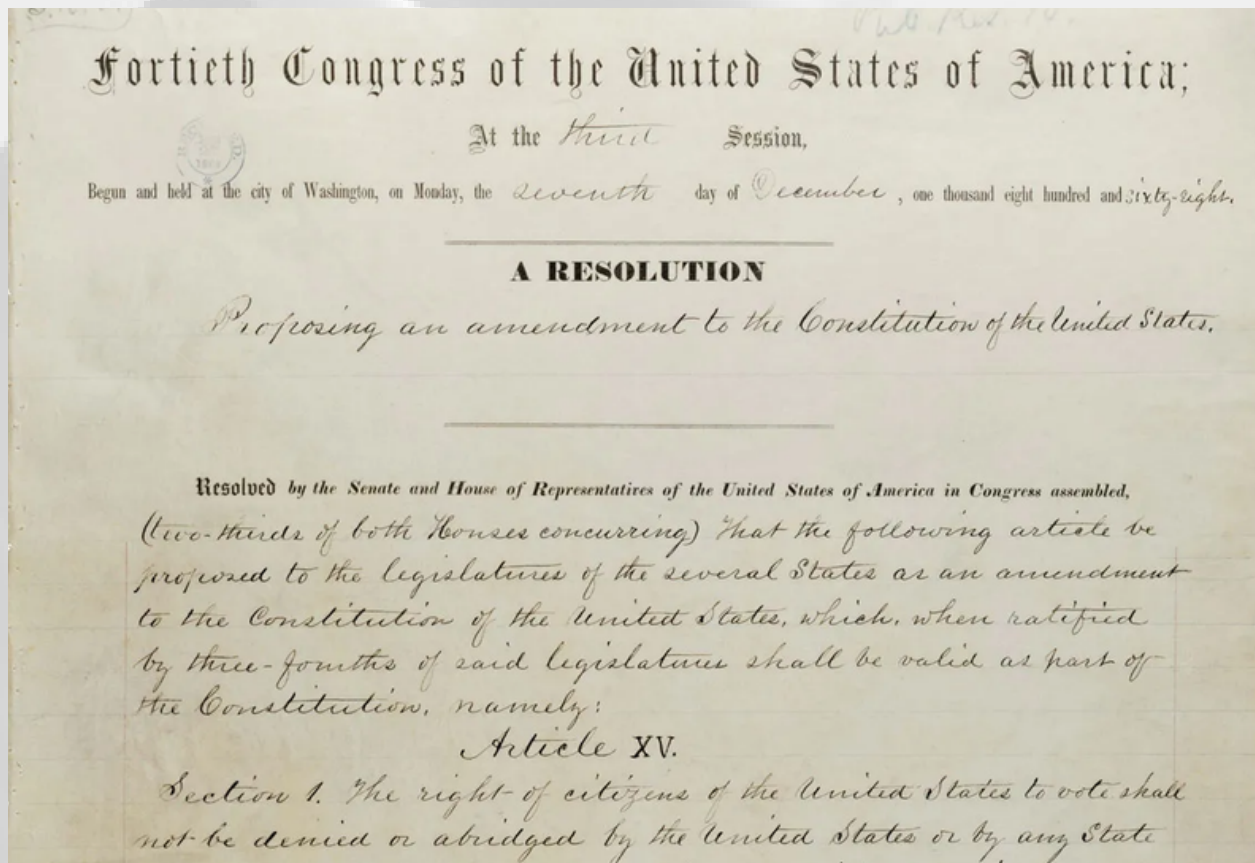 Fortieth Congress of the United States of America;
At the third Session,
Begun and held at the city of Washington, on Monday, the seventh day of December, one thousand eight hundred and sixty-eight.
A RESOLUTION
Proposing an amendment to the Constitution of the United States.
Resolved by the Senate and House of Representatives of the United States of America in Congress assembled,
(two-thirds of both Houses concurring) That the following article be
proposed to the legislatures of the several States as an amendment
to the Constitution of the United States, which, when ratified
by three-fourths of said legislatures shall be valid as part of
the Constitution, namely:
Article XV.
Section 1. The right of citizens of the United States to vote shall
not be denied or abridged by the United States or by any State